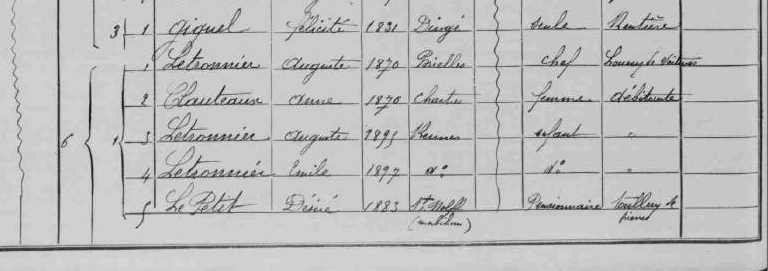 3 1 Giquel Félicité 1831 Dingé seule Rentière
1 Letronnier Auguste 1870 Brielles chef Loueur de Voitures
2 Clauteaux Anne 1870 Chartres femme débitante
6 1 3 Letronnier Auguste 1895 Rennes enfant "
4 Letronnier Emile 1897 do do "
5 Le Petit Désiré 1883 St Molf Pensionnaire tailleur de
(morbihan) pierres